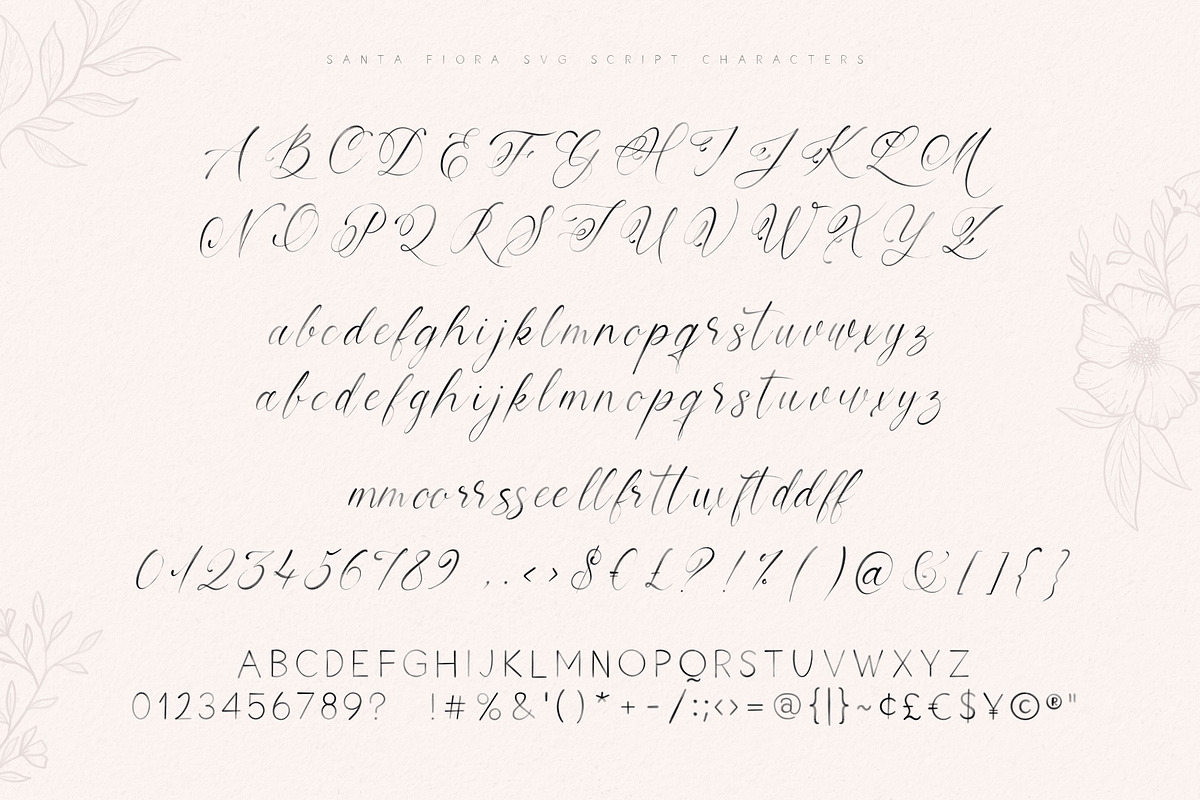 SANTA FIORA SVG SCRIPT CHARACTERS
A B C D E F G H I J K L M
N O P Q R S T U V W X Y Z
abcdefghijklmnopqrstuvwxyz
abcdefghijklmnopqrstuvwxyz
mmoorrsseellfrttuxftddff
0123456789 ,.<>$€£?!%()@&[]{}
ABCDEFGHIJKLMNOPQRSTUVWXYZ
0123456789? !#%&'()*+-/:;<>=@{|}~¢£€$¥©®"